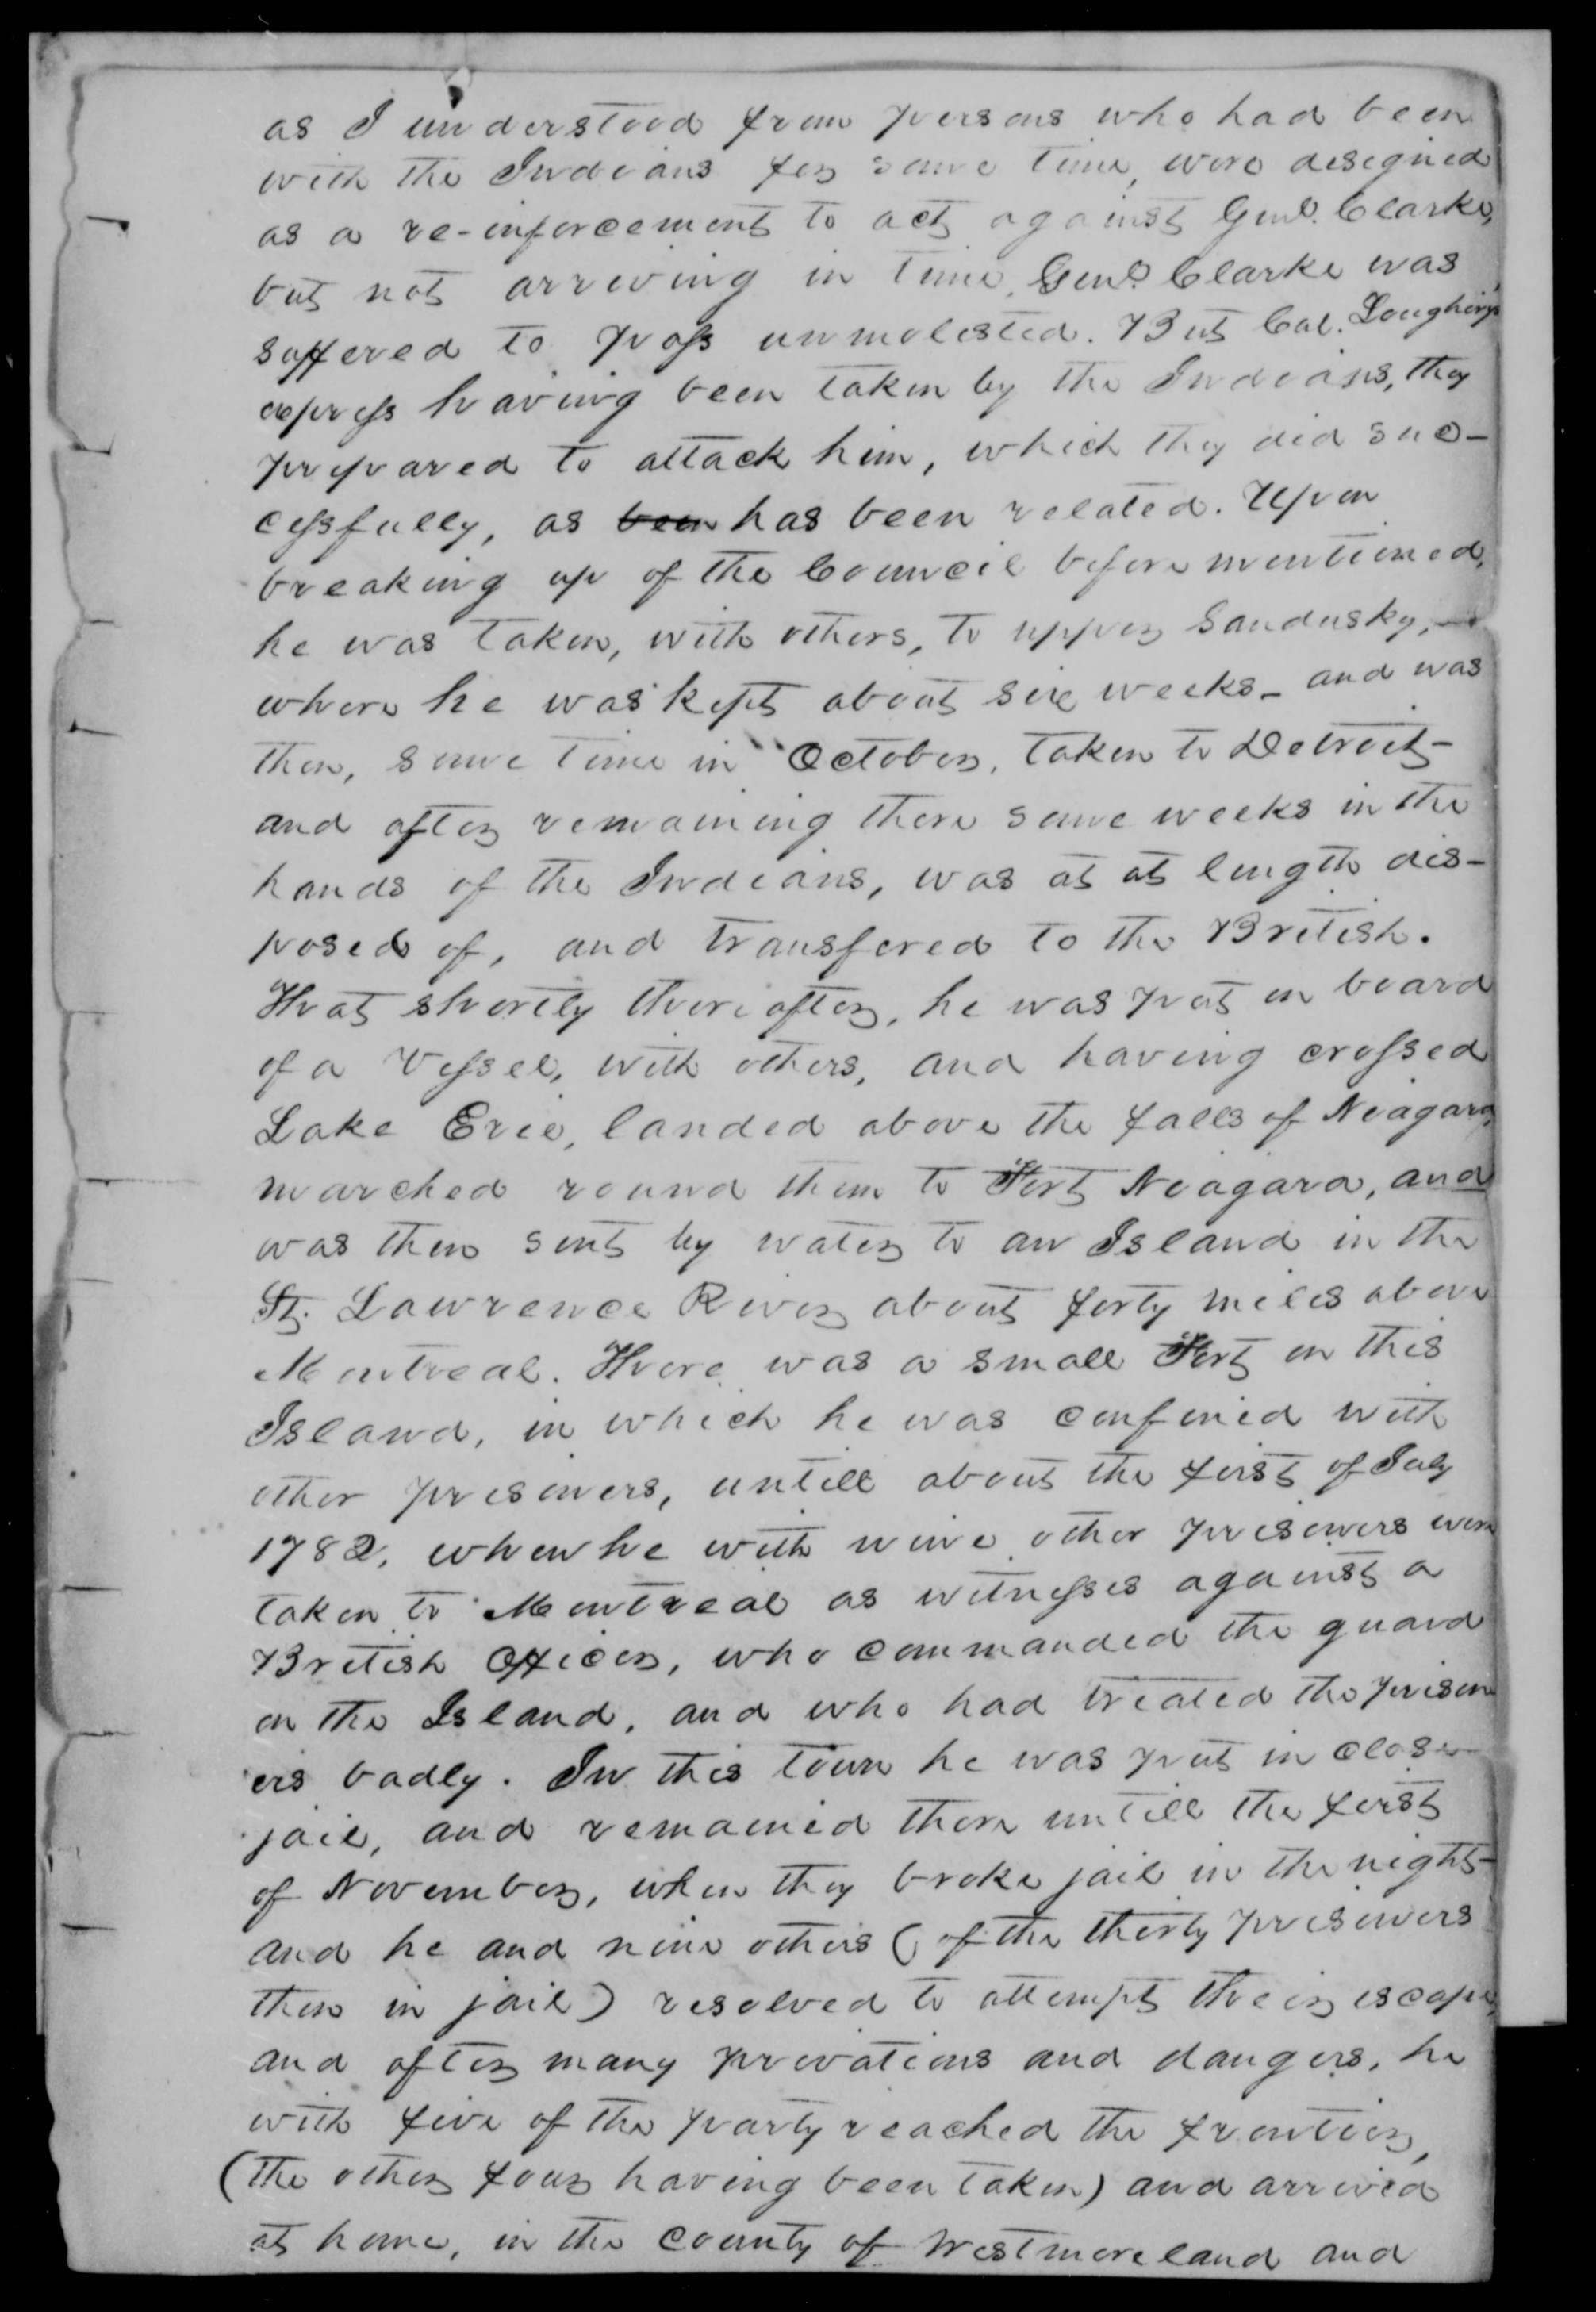 as I understood from persons who had been
with the Indians for some time, were designed
as a re-inforcement to act against Genl. Clarke,
but not arriving in time, Genl. Clarke was
suffered to pass unmolested. But Col. Loughery's
express having been taken by the Indians, they
prepared to attack him, which they did suc-
cessfully, as been has been related. Upon
breaking up of the Council before mentioned,
he was taken, with others, to upper Sandusky,
where he was kept about six weeks - and was
then, some time in October, taken to Detroit -
and after remaining there some weeks in the
hands of the Indians, was at at length dis-
posed of, and transfered to the British.
That shortly thereafter, he was put on board
of a Vessel, with others, and having crossed
Lake Erie, landed above the falls of Niagara,
marched round them to Fort Niagara, and
was then sent by water to an Island in the
St. Lawrence River about forty miles above
Montreal. There was a small Fort on this
Island, in which he was confined with
other prisoners, untill about the first of July
1782, when he with nine other prisoners were
taken to Montreal as witnesses against a
British Officer, who commanded the guard
on the Island, and who had treated the prison
ers badly. In this town he was put in close
jail, and remained there untill the first
of November, when they broke jail in the night -
and he and nine others (of the thirty prisoners
then in jail) resolved to attempt their escape,
and after many privations and dangers, he
with five of the party reached the frontier,
(the other four having been taken) and arrived
at home, in the county of Westmoreland and